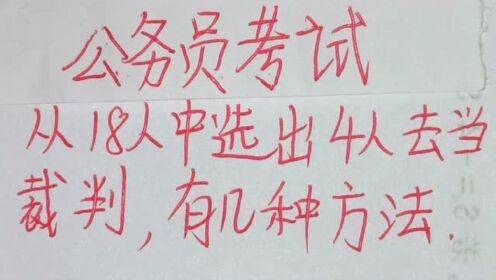 公务员考试
从18人中选出4人去当
裁判,有几种方法.